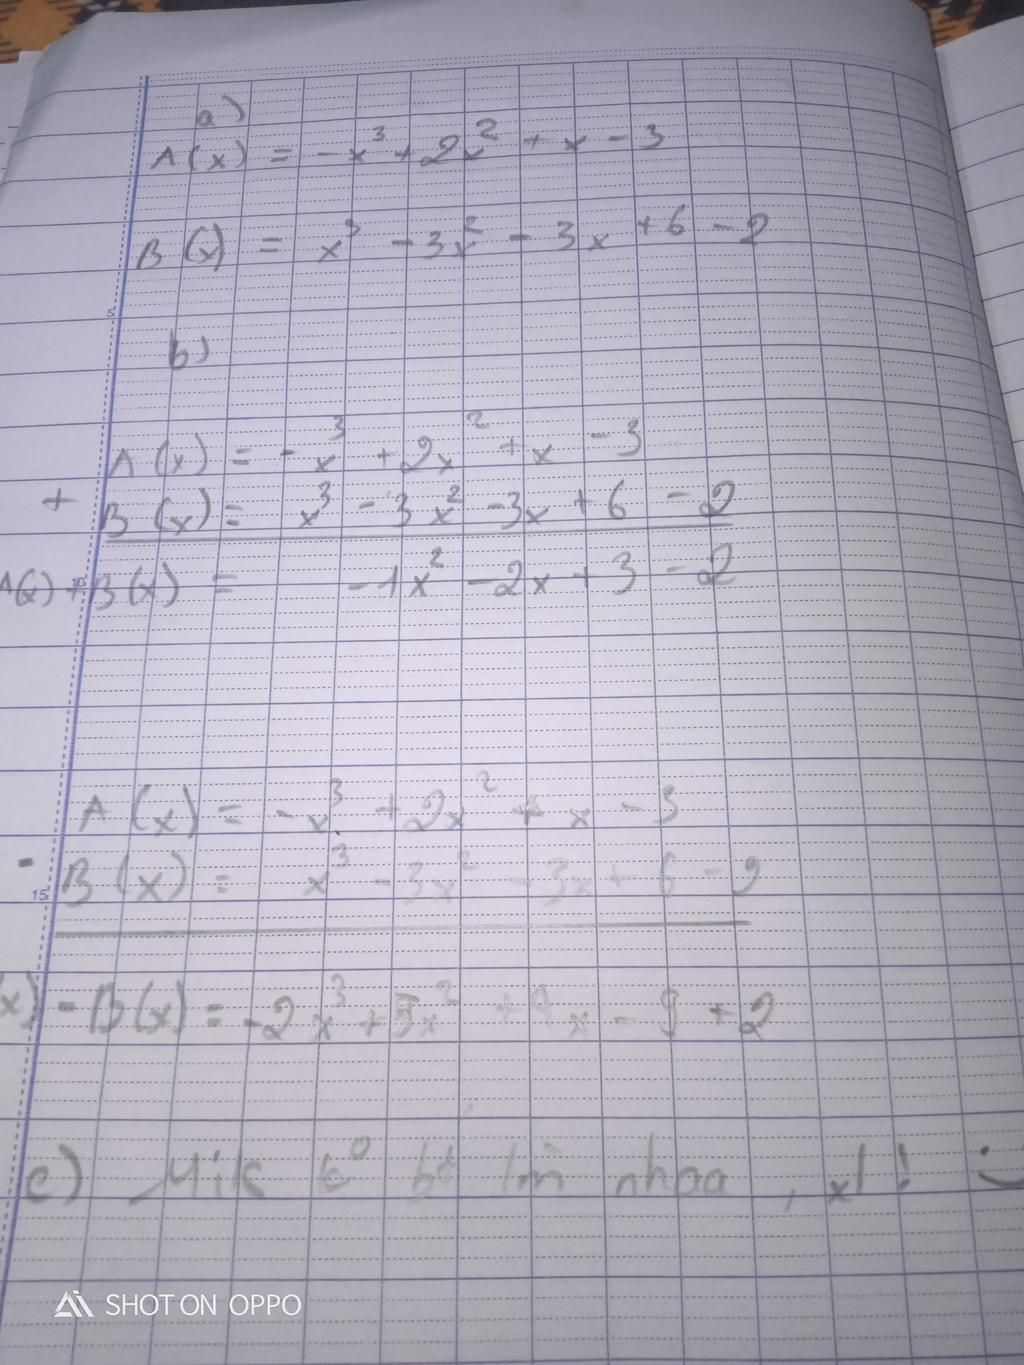 a)
A(x) = -x³ + 2x² + x - 3
B(x) = x³ - 3x² - 3x + 6 - 2
5
b)
A(x) = -x³ + 2x² + x - 3
+
B(x) = x³ - 3x² - 3x + 6 - 2
A(x) + B(x) = -1x² - 2x + 3 - 2
10
A(x) = -x³ + 2x² + x - 3
-
B(x) = x³ - 3x² - 3x + 6 - 2
15
x) - B(x) = -2x³ + 5x² + 4x - 9 + 2
c) Mik k⁰ bt lm nhaa, xl! :)
SHOT ON OPPO